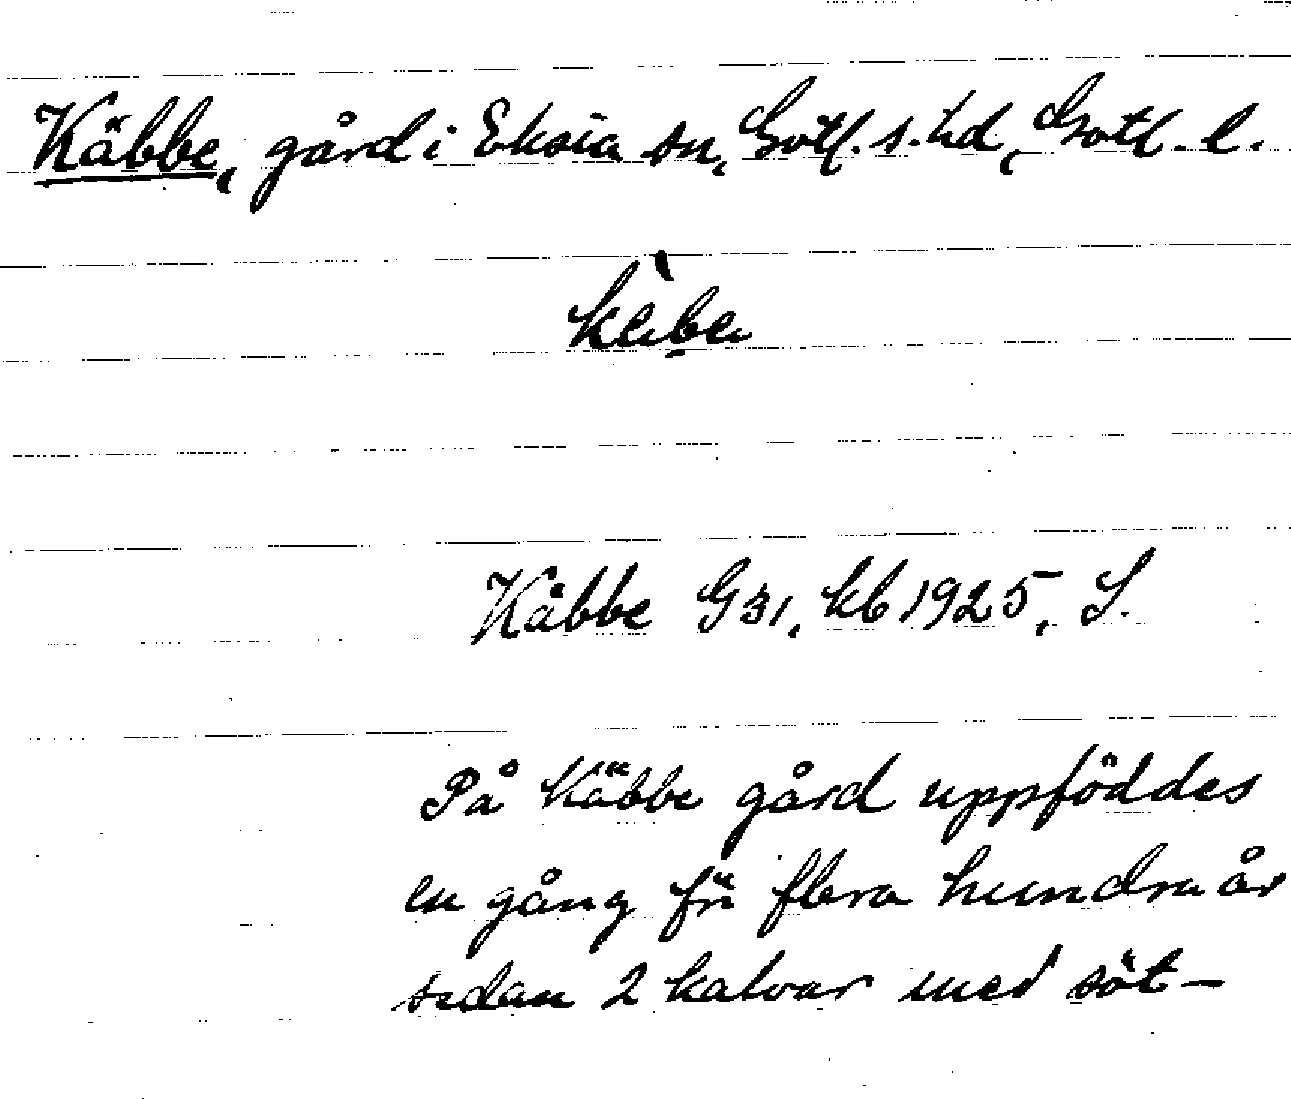 Käbbe, gård i Eksta sn, Gotl. s. hd, Gotl. l.
kèbe
Käbbe G31, kb 1925, S.
På Käbbe gård uppföddes
en gång för flera hundra år
sedan 2 kalvar med söt-